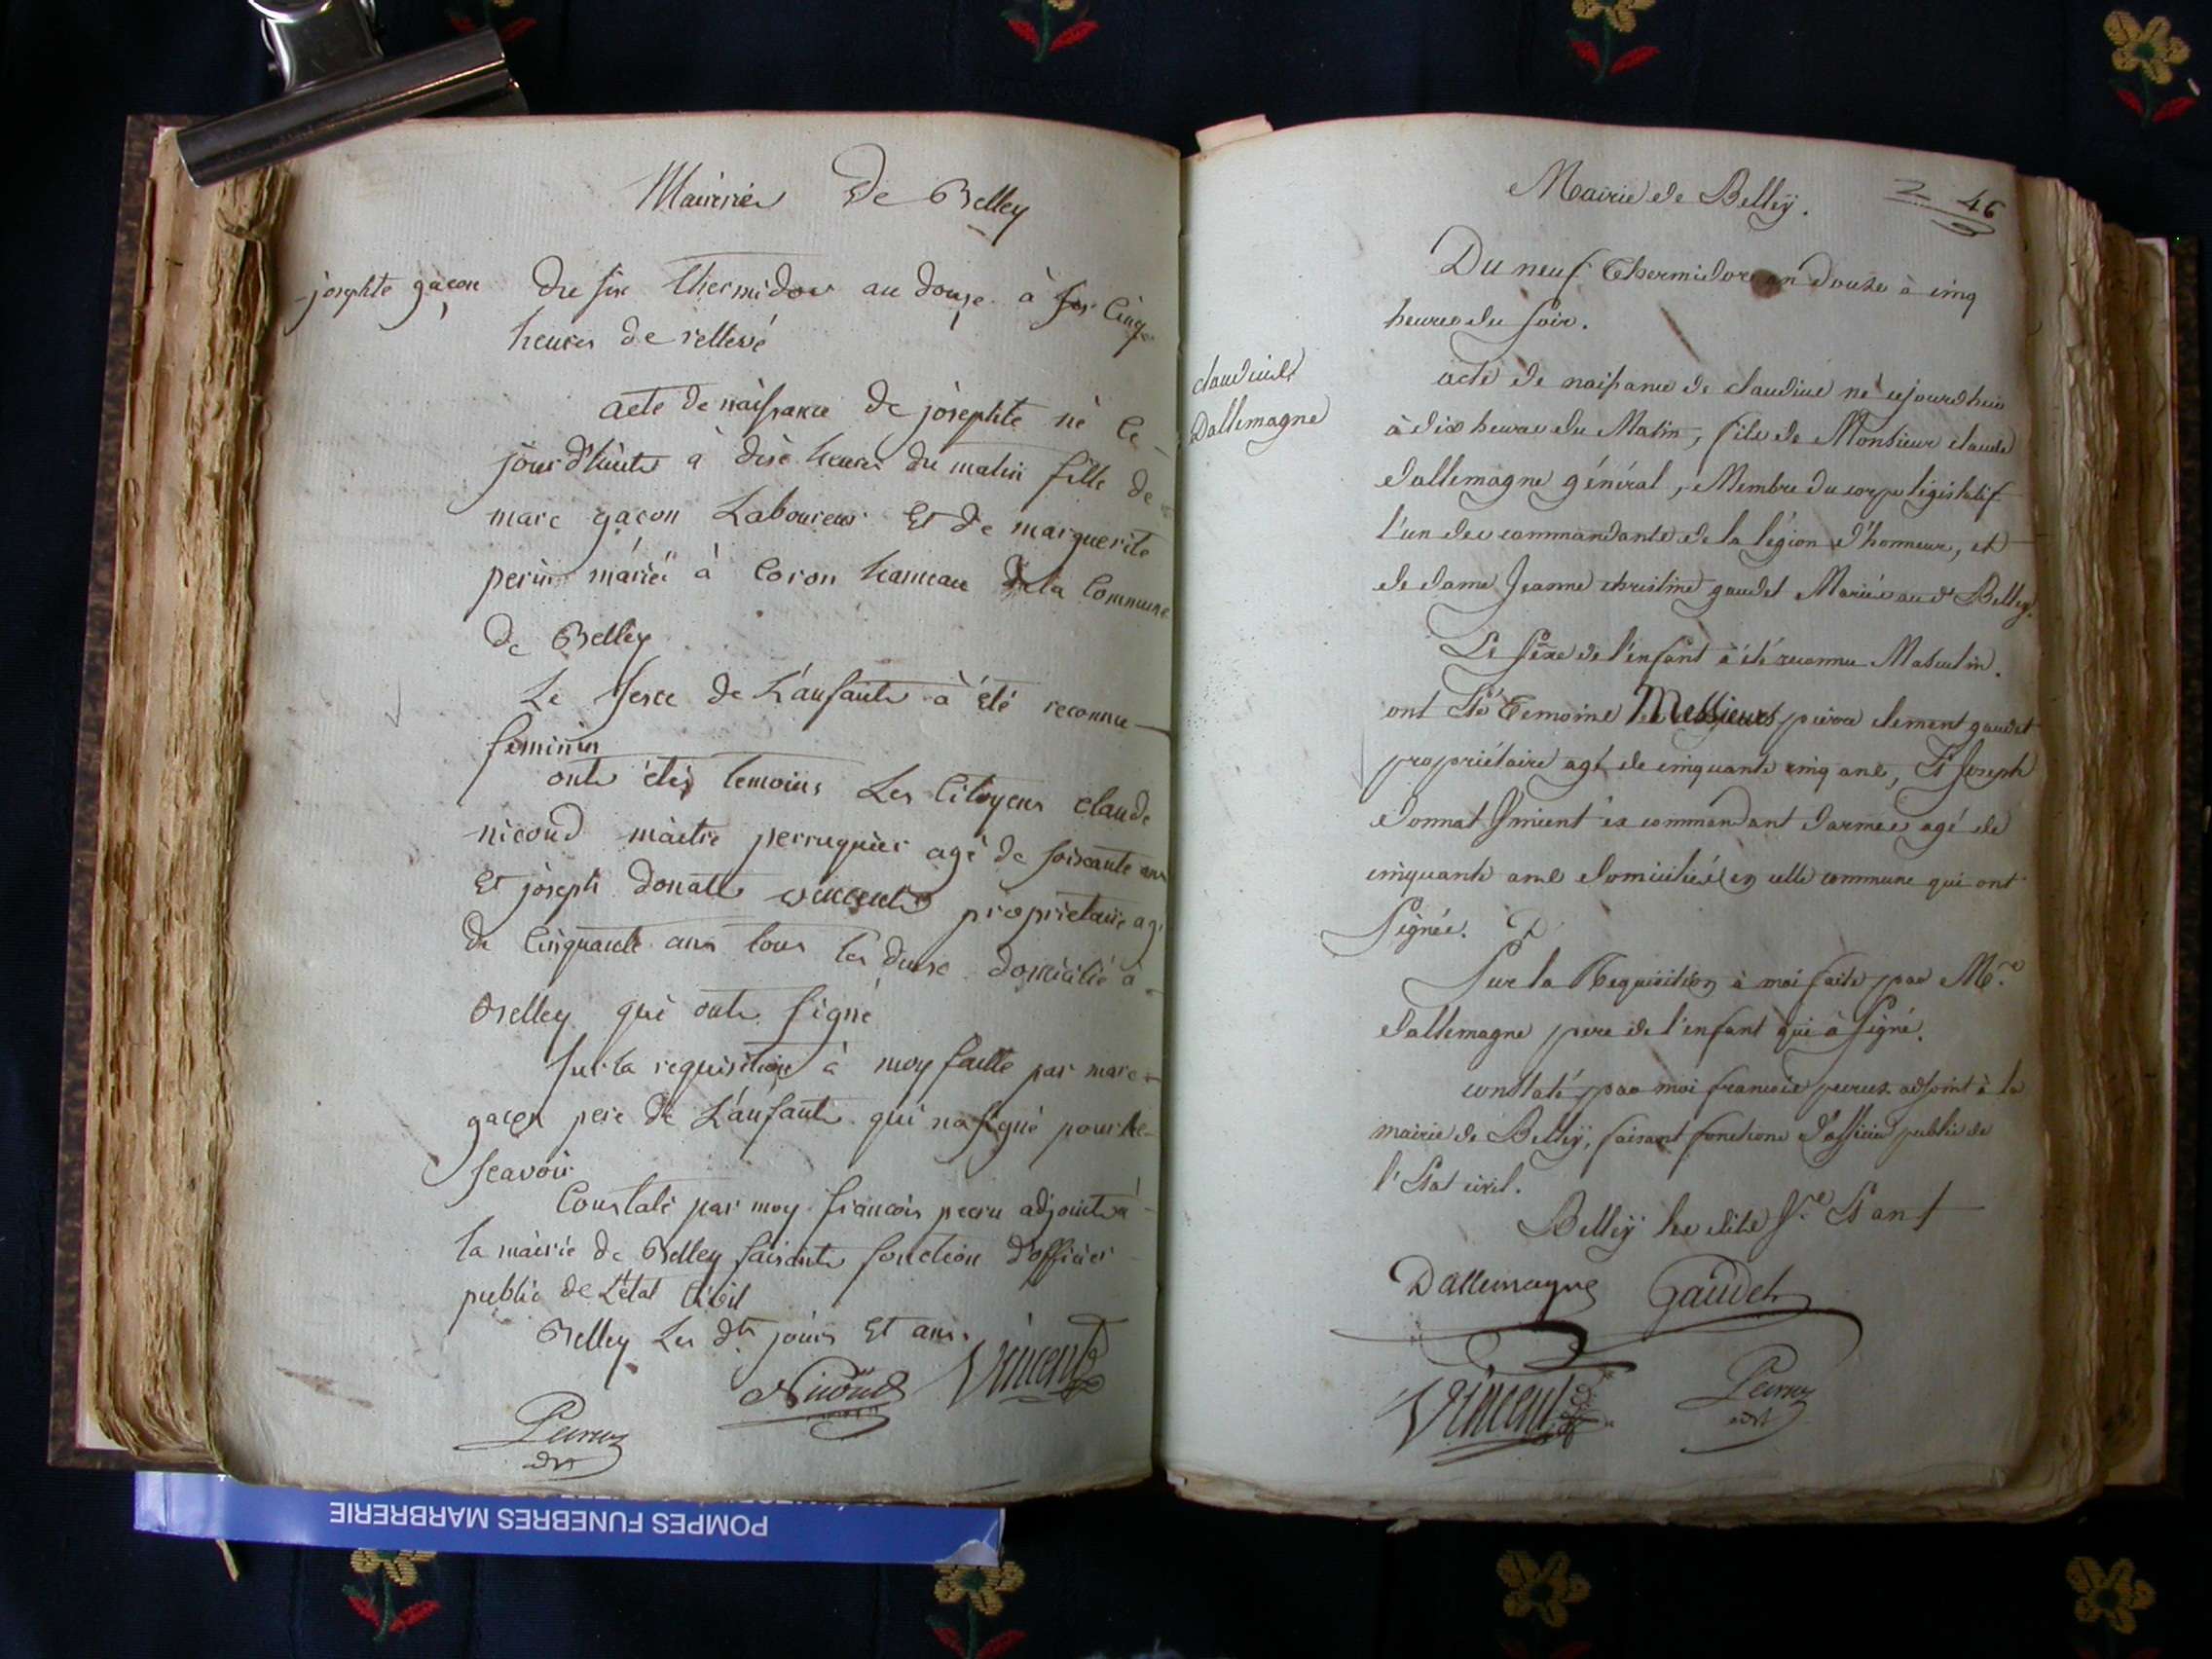 Mairie De Belley
josephte gaçon
Du six thermidor an douze à cinq
heures de rellevé
acte de naissance de josephte né ce
jour d'huit à dix heures du matin fille de
marc gaçon Laboureur Et de marguerite
perin mariéé à Coron hameau De la Commune
De Belley
Le sexe de L'anfant à été reconnu
feminin
ont étés temoins Les Citoyens Claude
nicoud maitre perruquier agé de soixante ans
Et joseph donatte vincent proprietaire agé
de Cinquante ans tous les deux domicilié à
Belley qui ont signé
sur la requisition à moy faitte par marc
gaçon pere de L'anfant qui na signé pour ne
scavoir
Constaté par moy francois peeru adjoint à
la mairie de Belley faisant fonction d'officier
public de L'état Civil
Belley Les dts jours Et ans.
Nicoud Vincent
Peiruz
adjt
POMPES FUNEBRES MARBRERIE
Mairie de Belleÿ.
2 46
Du neuf Thermidor an Douze à cinq
heures du soir.
claudius
Dallemagne
acte de naissance de claudius né cejourdhui
à dix heures du Matin, fils de Monsieur claude
dallemagne général, Membre du corps législatif
l'un des commandants de la légion d'honneur, et
de dame Jeanne christine gaudet Mariés au dt Belley.
Le sexe de l'enfant à été reconnu Masculin.
ont été Temoins Messieurs pierre clement gaudet
propriétaire agé de cinquante cinq ans, Et Joseph
donnat vincent ex commandant darmes agé de
cinquante ans domiciliés en cette commune qui ont
signés.
Sur la Requisition à moi faite par Mr
dallemagne pere de l'enfant qui à signé.
constaté par moi francois peeruz adjoint à la
mairie de Belleÿ, faisant fonctions d'officier public de
l'Etat civil.
Belleÿ les dits Jr Et an
Dallemagne Gaudet
Vincent Peiruz
adjt